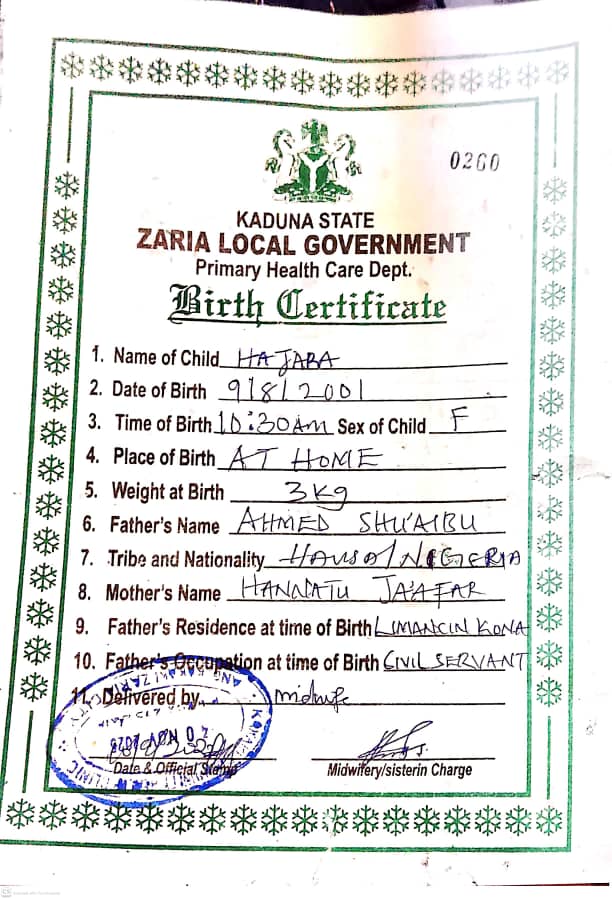 0260
KADUNA STATE
ZARIA LOCAL GOVERNMENT
Primary Health Care Dept.
Birth Certificate
1. Name of Child HAJARA
2. Date of Birth 9/8/2001
3. Time of Birth 10:30AM Sex of Child F
4. Place of Birth AT HOME
5. Weight at Birth 3kg
6. Father's Name AHMED SHU'AIBU
7. Tribe and Nationality HAUSA/NIGERIA
8. Mother's Name HANNATU JA'AFAR
9. Father's Residence at time of Birth LIMANCIN KONA
10. Father's Occupation at time of Birth CIVIL SERVANT
11. Delivered by midwife
20 NOV
CLINIC
Date & Official Stamp
Midwifery/sisterin Charge